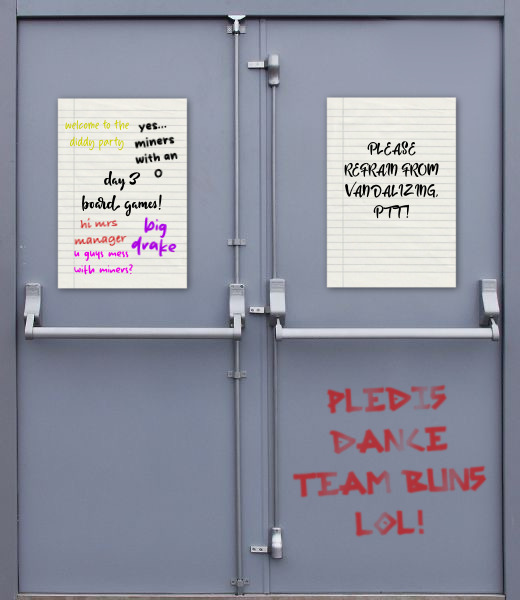 welcome to the
diddy party
yes...
miners
with an
o
day 3
board games!
hi mrs
manager
big
drake
u guys mess
with miners?
PLEASE
REFRAIN FROM
VANDALIZING.
PTT!
PLEDIS
DANCE
TEAM BUNS
LOL!